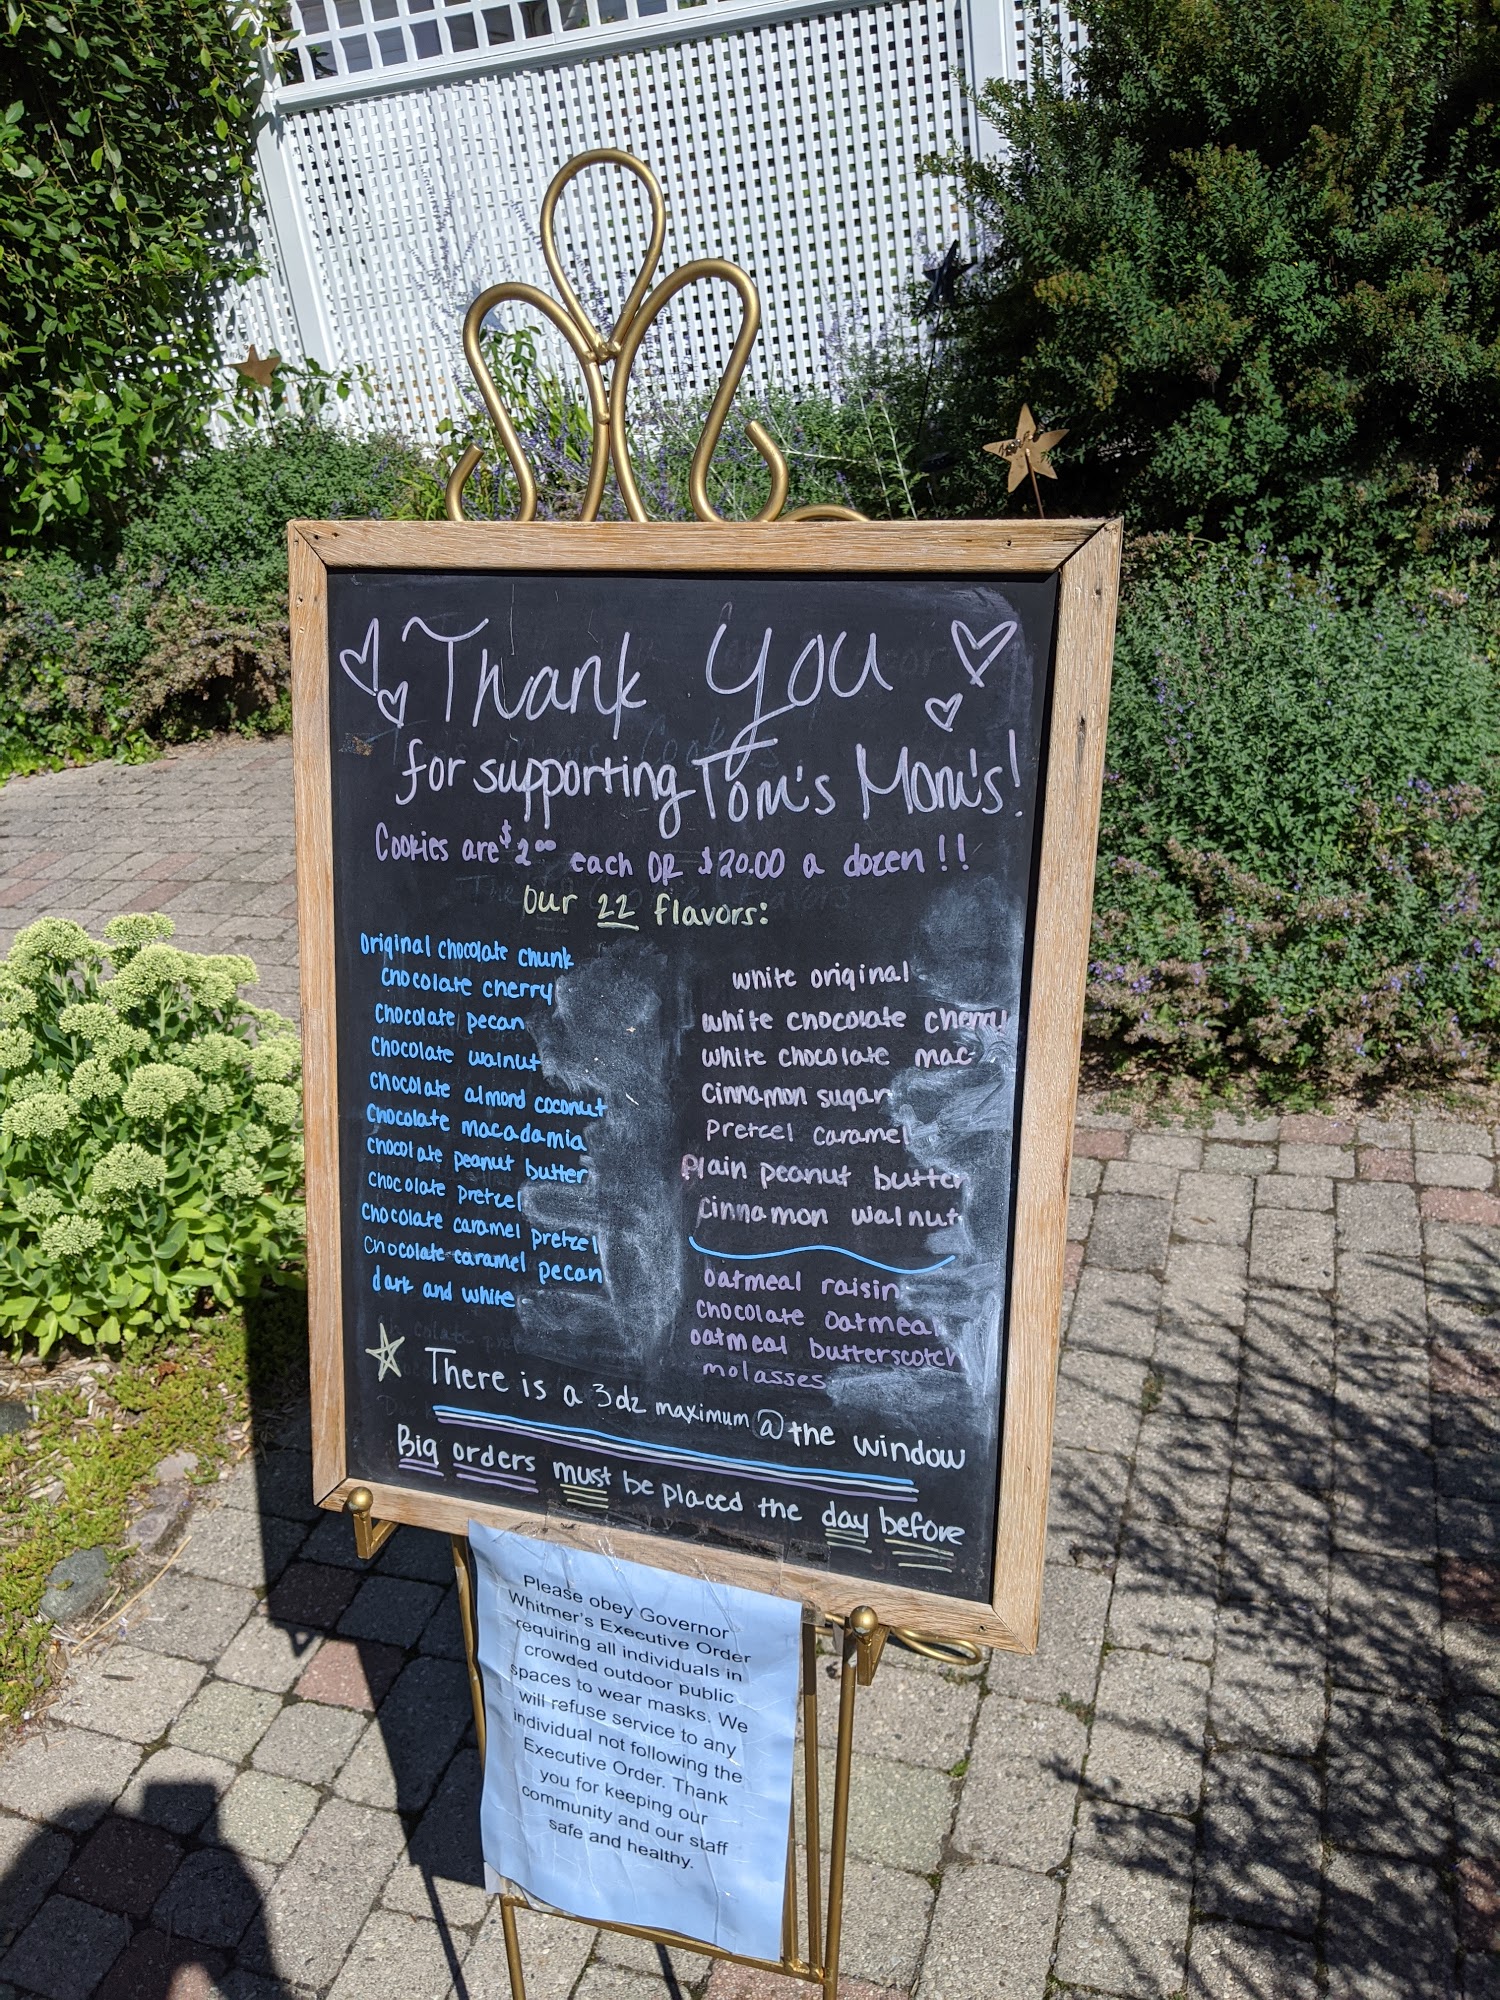 Thank You
for supporting Tom's Mom's!
Cookies are $2.00 each OR $20.00 a dozen!!
Our 22 flavors:
Original chocolate chunk
chocolate cherry
chocolate pecan
chocolate walnut
chocolate almond coconut
chocolate macadamia
chocolate peanut butter
chocolate pretzel
chocolate caramel pretzel
chocolate caramel pecan
dark and white
white original
white chocolate cherry
white chocolate mac
cinnamon sugar
pretzel caramel
plain peanut butter
cinnamon walnut
oatmeal raisin
chocolate oatmeal
oatmeal butterscotch
molasses
There is a 3dz maximum @ the window
Big orders must be placed the day before
Please obey Governor
Whitmer's Executive Order
requiring all individuals in
crowded outdoor public
spaces to wear masks. We
will refuse service to any
individual not following the
Executive Order. Thank
you for keeping our
community and our staff
safe and healthy.